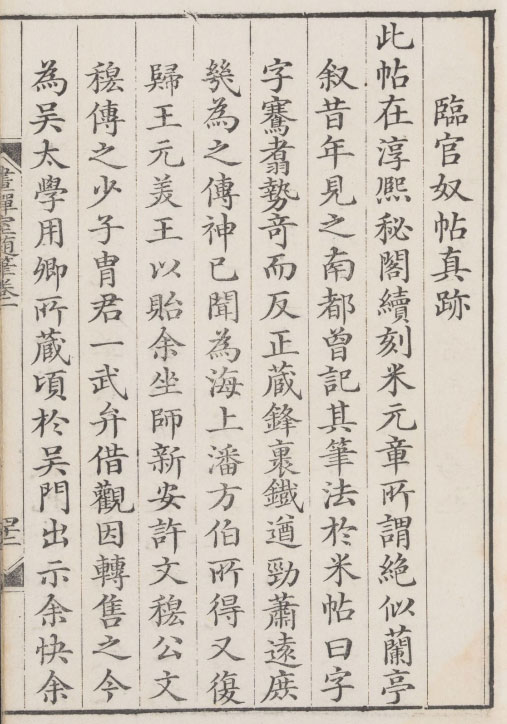 臨官奴帖真跡
此帖在淳熈秘閣續刻米元章所謂絶似蘭亭
叙昔年見之南都曾記其筆法於米帖曰字
字騫翥勢竒而反正藏鋒裹鐵遒勁蕭遠庶
幾為之傳神已聞為海上潘方伯所得又復
歸王元美王以貽余坐師新安許文穆公文
穆傳之少子胄君一武弁借觀因轉售之今
為吴太學用卿所藏頃於吴門出示余快余
畫禪室随筆卷一